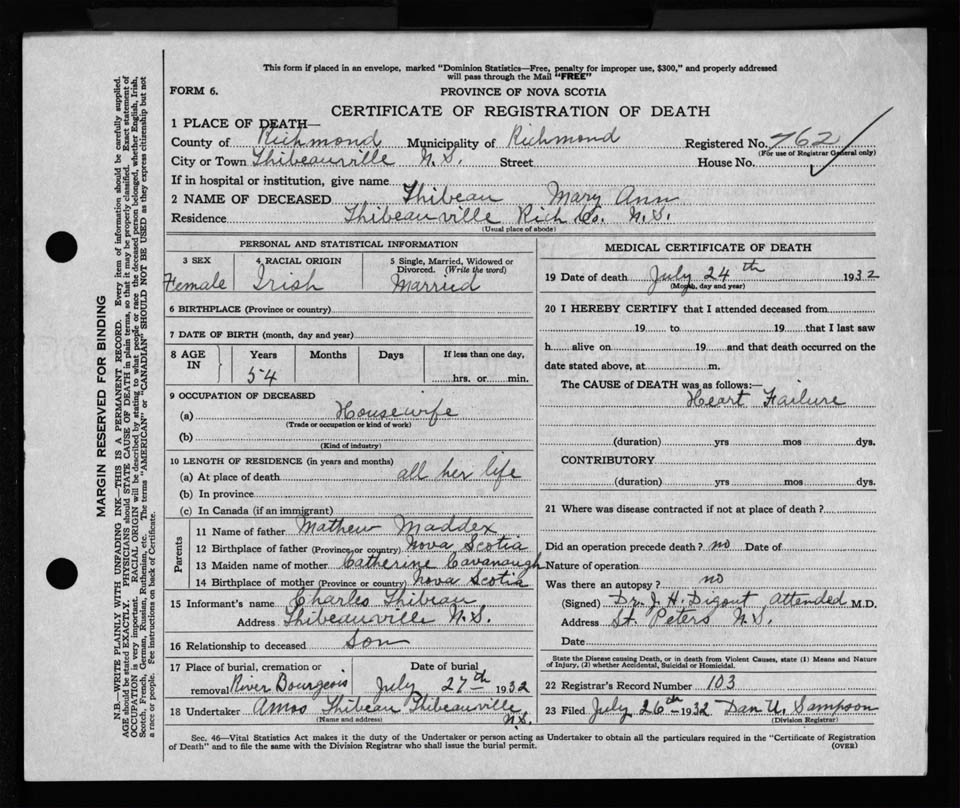 This form if placed in an envelope, marked "Dominion Statistics—Free, penalty for improper use, $300," and properly addressed
will pass through the Mail "FREE"
FORM 6.
PROVINCE OF NOVA SCOTIA
CERTIFICATE OF REGISTRATION OF DEATH
1 PLACE OF DEATH—
County of Richmond Municipality of Richmond Registered No. 762
(For use of Registrar General only)
City or Town Thibeauville N.S. Street House No.
If in hospital or institution, give name
2 NAME OF DECEASED Thibeau Mary Ann
Residence Thibeauville Rich Co. N.S.
(Usual place of abode)
PERSONAL AND STATISTICAL INFORMATION
3 SEX
Female
4 RACIAL ORIGIN
Irish
5 Single, Married, Widowed or
Divorced. (Write the word)
Married
6 BIRTHPLACE (Province or country)
7 DATE OF BIRTH (month, day and year)
8 AGE
IN
Years Months Days If less than one day,
54 hrs. or min.
9 OCCUPATION OF DECEASED
(a) Housewife
(Trade or occupation or kind of work)
(b)
(Kind of industry)
10 LENGTH OF RESIDENCE (in years and months)
(a) At place of death all her life
(b) In province
(c) In Canada (if an immigrant)
Parents
11 Name of father Mathew Maddex
12 Birthplace of father (Province or country) Nova Scotia
13 Maiden name of mother Catherine Cavanaugh
14 Birthplace of mother (Province or country) Nova Scotia
15 Informant's name Charles Thibeau
Address Thibeauville N.S.
16 Relationship to deceased Son
17 Place of burial, cremation or Date of burial
removal River Bourgeois July 27th 1932
18 Undertaker Amos Thibeau Thibeauville
N.S.
(Name and address)
MEDICAL CERTIFICATE OF DEATH
19 Date of death July 24th 1932
(Month, day and year)
20 I HEREBY CERTIFY that I attended deceased from
19 to 19 that I last saw
h alive on 19 and that death occurred on the
date stated above, at m.
The CAUSE of DEATH was as follows:—
Heart Failure
(duration) yrs mos dys.
CONTRIBUTORY
(duration) yrs mos dys.
21 Where was disease contracted if not at place of death?
Did an operation precede death? no Date of
Nature of operation
Was there an autopsy? no
(Signed) Dr. J. H. Digout Attended M.D.
Address St. Peters N.S.
Date
State the Disease causing Death, or in death from Violent Causes, state (1) Means and Nature
of Injury, (2) whether Accidental, Suicidal or Homicidal.
22 Registrar's Record Number 103
23 Filed July 26th 1932 Dan U. Sampson
(Division Registrar)
Sec. 46—Vital Statistics Act makes it the duty of the Undertaker or person acting as Undertaker to obtain all the particulars required in the "Certificate of Registration
of Death" and to file the same with the Division Registrar who shall issue the burial permit.
(OVER)
MARGIN RESERVED FOR BINDING
N.B.—WRITE PLAINLY WITH UNFADING INK—THIS IS A PERMANENT RECORD. Every item of information should be carefully supplied.
AGE should be stated EXACTLY. PHYSICIANS should STATE CAUSE OF DEATH in plain terms, so that it may be properly classified. Exact statement of
OCCUPATION is very important. RACIAL ORIGIN will be described by stating to what people or race the deceased person belonged, whether English, Irish,
Scotch, French, German, Russian, Ruthenian, etc. The terms "AMERICAN" or "CANADIAN" SHOULD NOT BE USED as they express citizenship but not
a race or people. See instructions on back of Certificate.